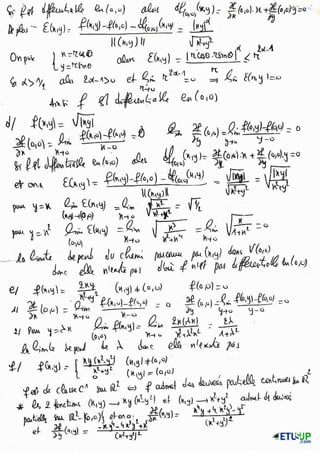 Si f est différentiable en (0,0) alors df(0,0)(x,y) = ∂f/∂x (0,0).x + ∂f/∂y (0,0)y = 0
De plus ε(x,y) = f(x,y) - f(0,0) - df(0,0)(x,y) / ||(x,y)|| = |xy|^α / √(x²+y²)
On pose { x = r cosθ y = r sinθ alors ε(x,y) = | r cosθ . r sinθ |^α / r ≤ r^(2α-1)
Si α > 1/2 alors 2α-1 > 0 et lim r→0 r^(2α-1) = 0 ⇒ lim ε(x,y) = 0
Ainsi f est différentiable en (0,0)
d/ f(x,y) = √|xy|
∂f/∂x (0,0) = lim x→0 f(x,0) - f(0,0) / x-0 = 0 ∂f/∂y (0,0) = lim y→0 f(0,y) - f(0,0) / y-0 = 0
Si f est différentiable en (0,0) alors df(0,0)(x,y) = ∂f/∂x (0,0).x + ∂f/∂y (0,0).y = 0
et on a ε(x,y) = f(x,y) - f(0,0) - df(0,0)(x,y) / ||(x,y)|| = √|xy| / √(x²+y²) = √(|xy| / x²+y²)
pour y = x lim ε(x,y) = lim x→0 √(x² / x²+x²) = √1/2
pour y = x² lim (0,0) ε(x,y) = lim x→0 √(x³ / x²+x⁴) = lim x→0 √(x / 1+x²) = 0
la limite dépend du chemin parcouru par (x,y) dans V(0,0)
donc elle n'existe pas d'où f n'est pas différentiable en (0,0)
e/ f(x,y) = 2xy / x²+y² (x,y) ≠ (0,0) f(0,0) = 0
1/ ∂f/∂x (0,0) = lim x→0 f(x,0) - f(0,0) / x-0 = 0 ∂f/∂y (0,0) = lim y→0 f(0,y) - f(0,0) / y-0 = 0
2/ Pour y = λx lim (0,0) f(x,y) = lim x→0 2x(λx) / x²+λ²x² = 2λ / 1+λ²
la limite dépend de λ donc elle n'existe pas
f/ f(x,y) = { xy(x²-y²) / x²+y² (x,y) ≠ (0,0) 0 (x,y) = (0,0)
f est de classe C¹ sur ℝ² ⇔ f admet des dérivées partielles continues sur ℝ²
* les 2 fonctions (x,y) → xy(x²-y²) et (x,y) → x²+y² admet des dérivées
partielles sur ℝ² - {(0,0)} et on a : ∂f/∂x (x,y) = x⁴y + 4x²y³ - y⁵ / (x²+y²)²
et ∂f/∂y (x,y) =
ETUUP
.com